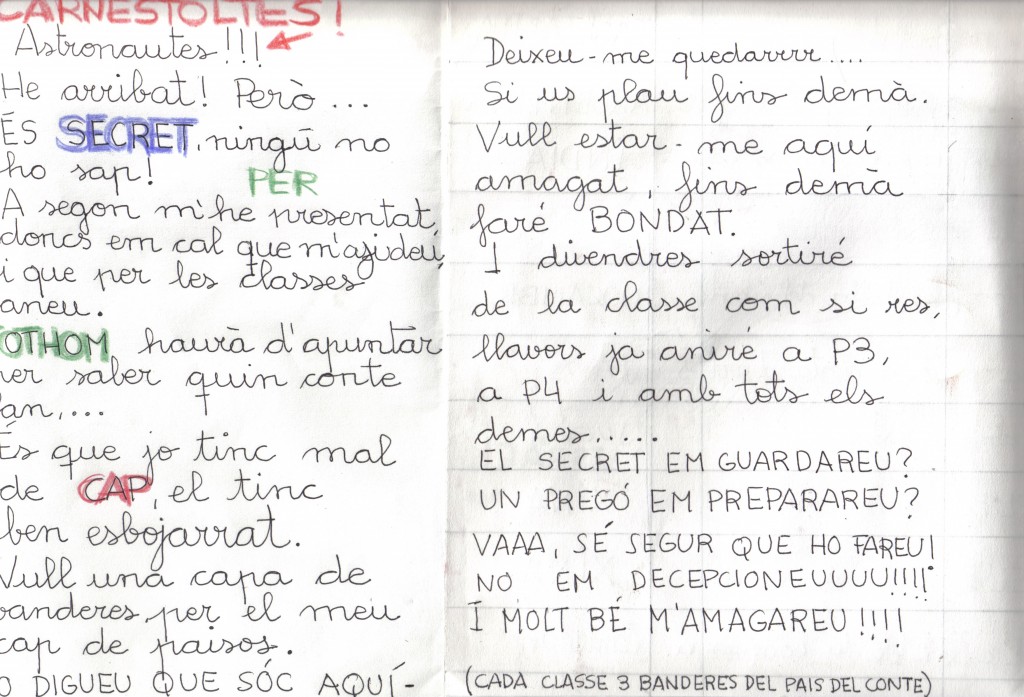 CARNESTOLTES!
Astronautes!!!
He arribat! Però ...
ÉS SECRET, ningú no
ho sap!
PER
A segon m'he presentat,
doncs em cal que m'ajudeu,
i que per les classes
aneu.
TOTHOM haurà d'apuntar
per saber quin conte
fan,...
És que jo tinc mal
de CAP, el tinc
ben esbojarrat.
Vull una capa de
banderes, per el meu
cap de paisos.
NO DIGUEU QUE SÓC AQUÍ-
Deixeu-me quedarrrr....
Si us plau fins demà.
Vull estar-me aquí
amagat, fins demà
faré BONDAT.
I divendres sortiré
de la classe com si res,
llavors ja aniré a P3,
a P4 i amb tots els
demes.....
EL SECRET EM GUARDAREU?
UN PREGÓ EM PREPARAREU?
VAAA, SÉ SEGUR QUE HO FAREU!
NO EM DECEPCIONEUUUU!!!!
I MOLT BÉ M'AMAGAREU!!!!
(CADA CLASSE 3 BANDERES DEL PAIS DEL CONTE)